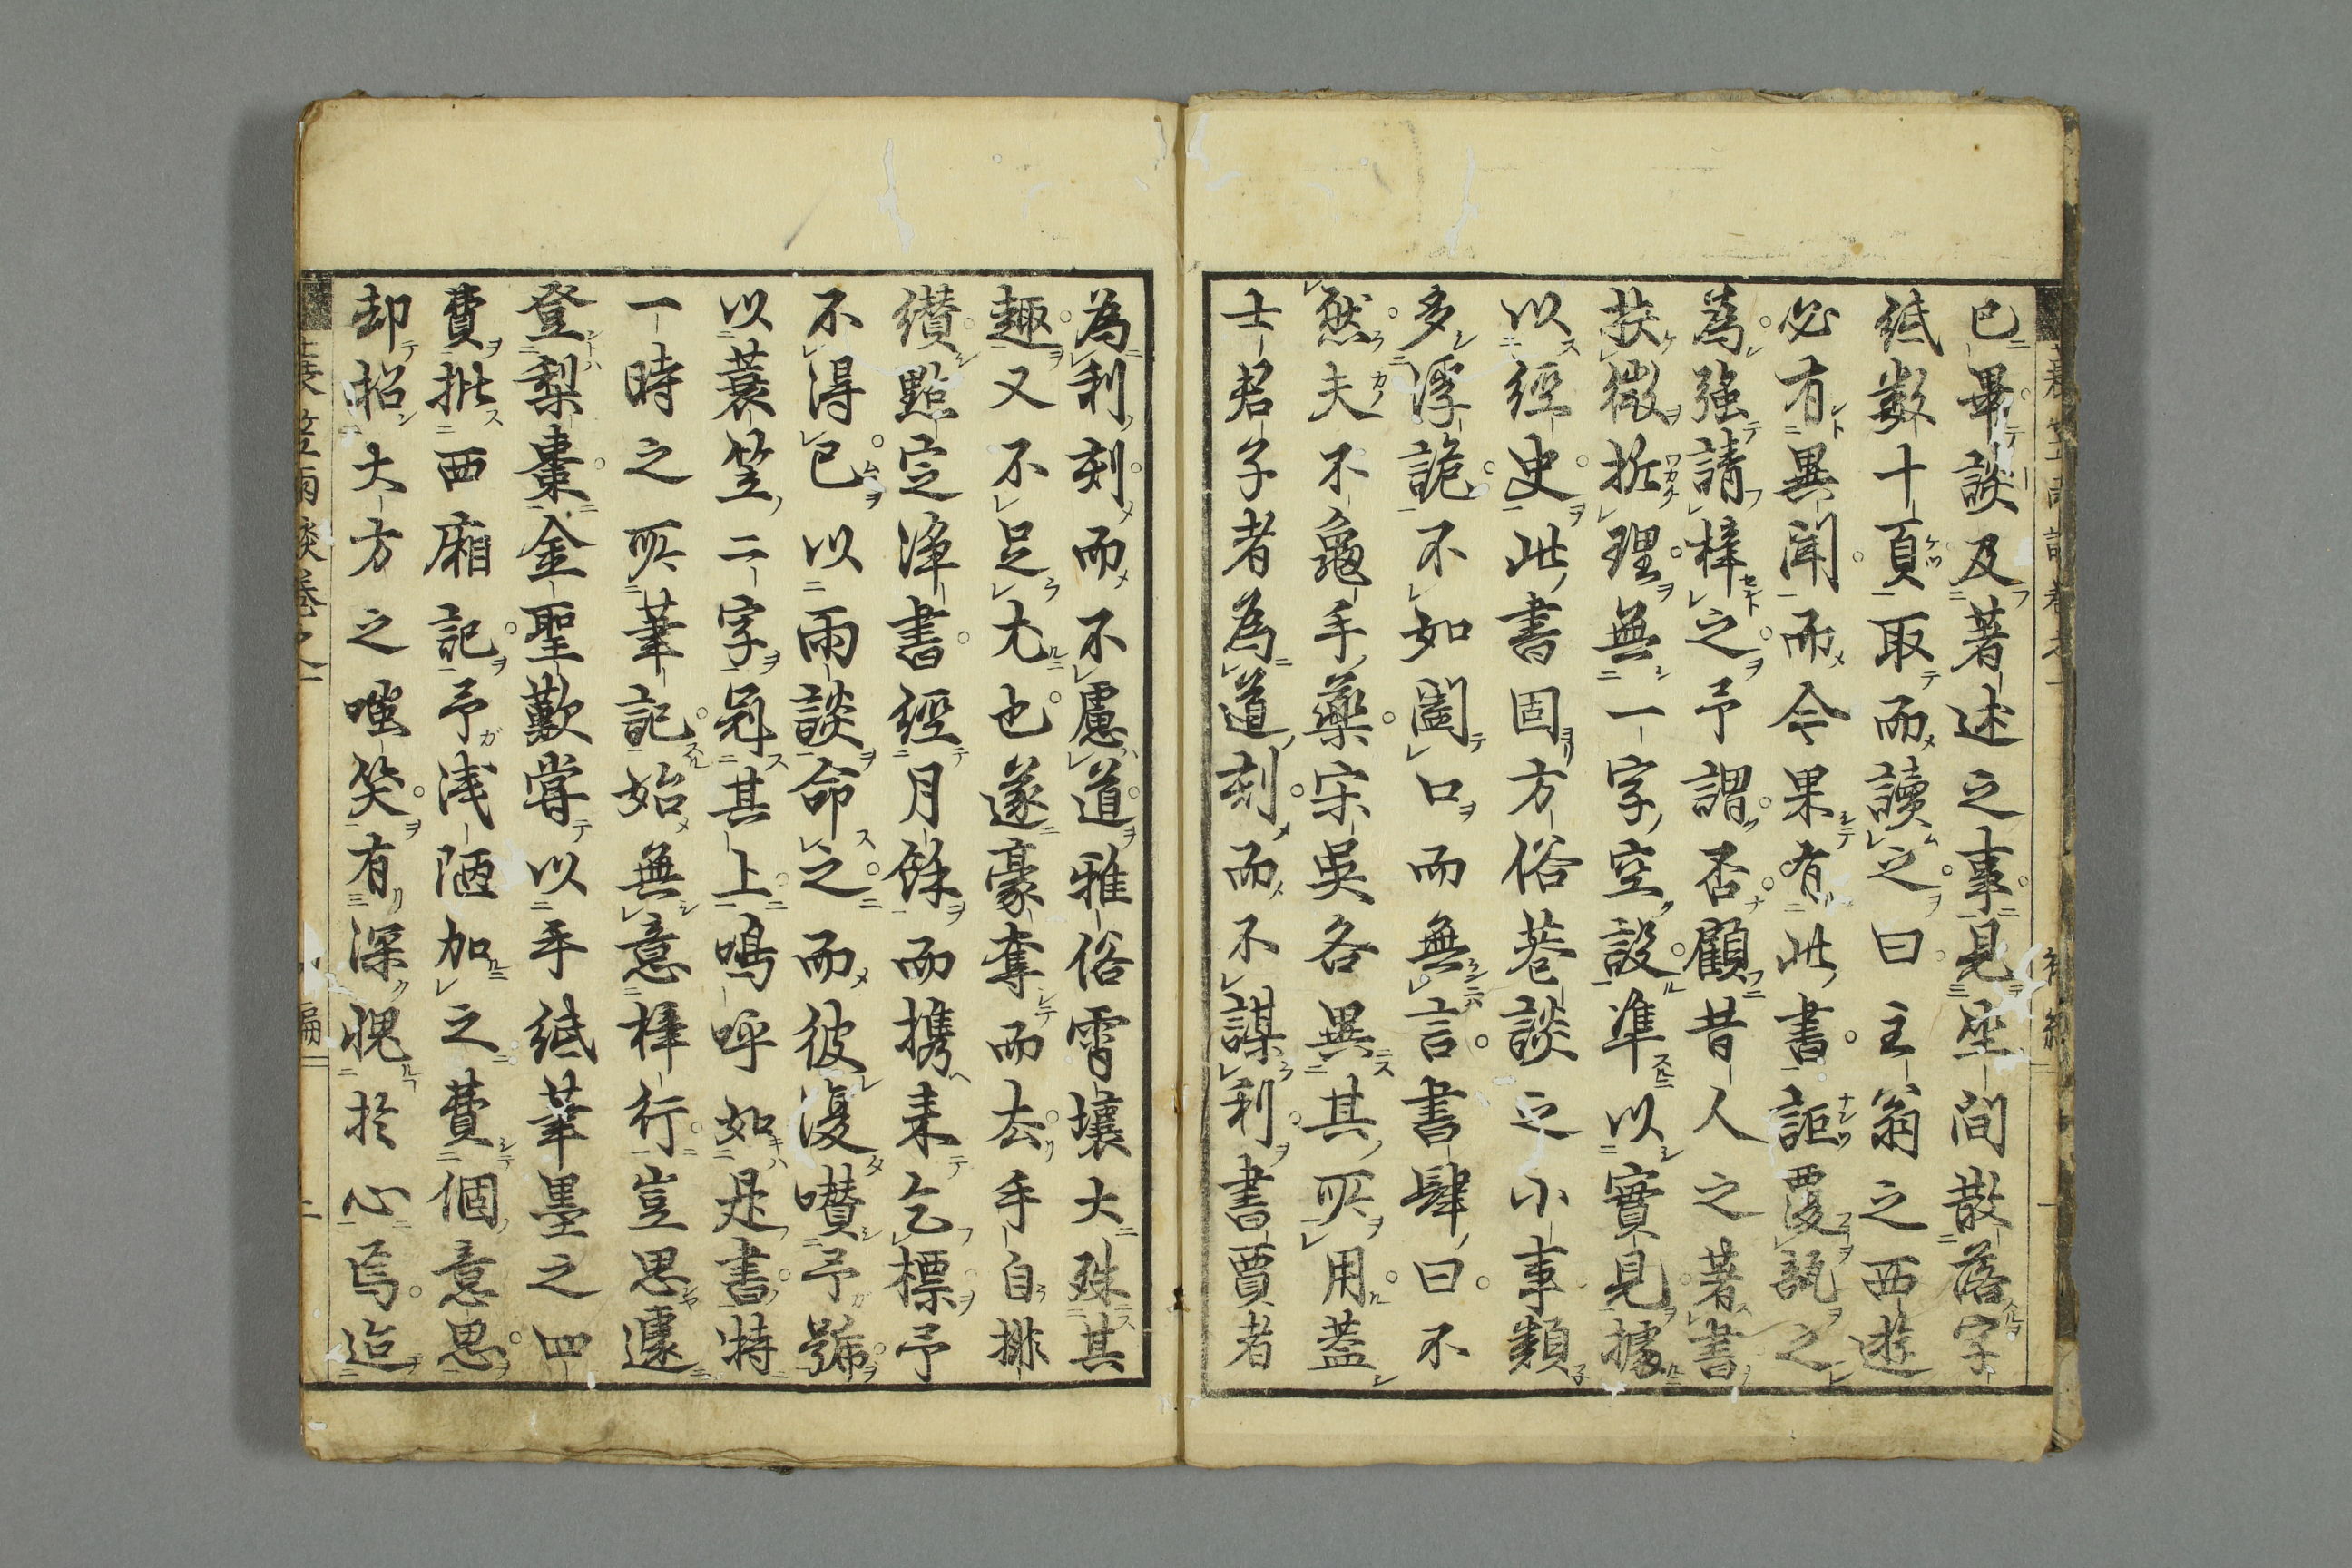 已畢談及著述之事見座間散落字
紙数十頁取而讀之曰主翁之西遊
必有異聞而今果有此書詎覆瓿之
為強請梓之予謂否顧昔人之著書
扶微折理無一字空設準以實見據
以經史此書固方俗巷談之小事類
多浮詭不如闔口而無言書肆曰不
然夫不龜手藥宋吳各異其所用蓋
士君子者為道刻而不謀利書賈者
為利刻而不慮道雅俗霄壤大殊其
趣又不足尤也遂豪奪而去手自排
纉點定淨書經月餘而携来乞標予
不得已以雨談命之而彼復囋予號
以蓑笠二字冠其上嗚呼如是書特
一時之所筆記始無意梓行豈思遽
登梨棗金聖歎嘗以手紙筆墨之四
費批西廂記予浅陋加之費個意思
却招大方之嗤笑有深愧於心焉迨
蓑笠雨談卷之一
編
二